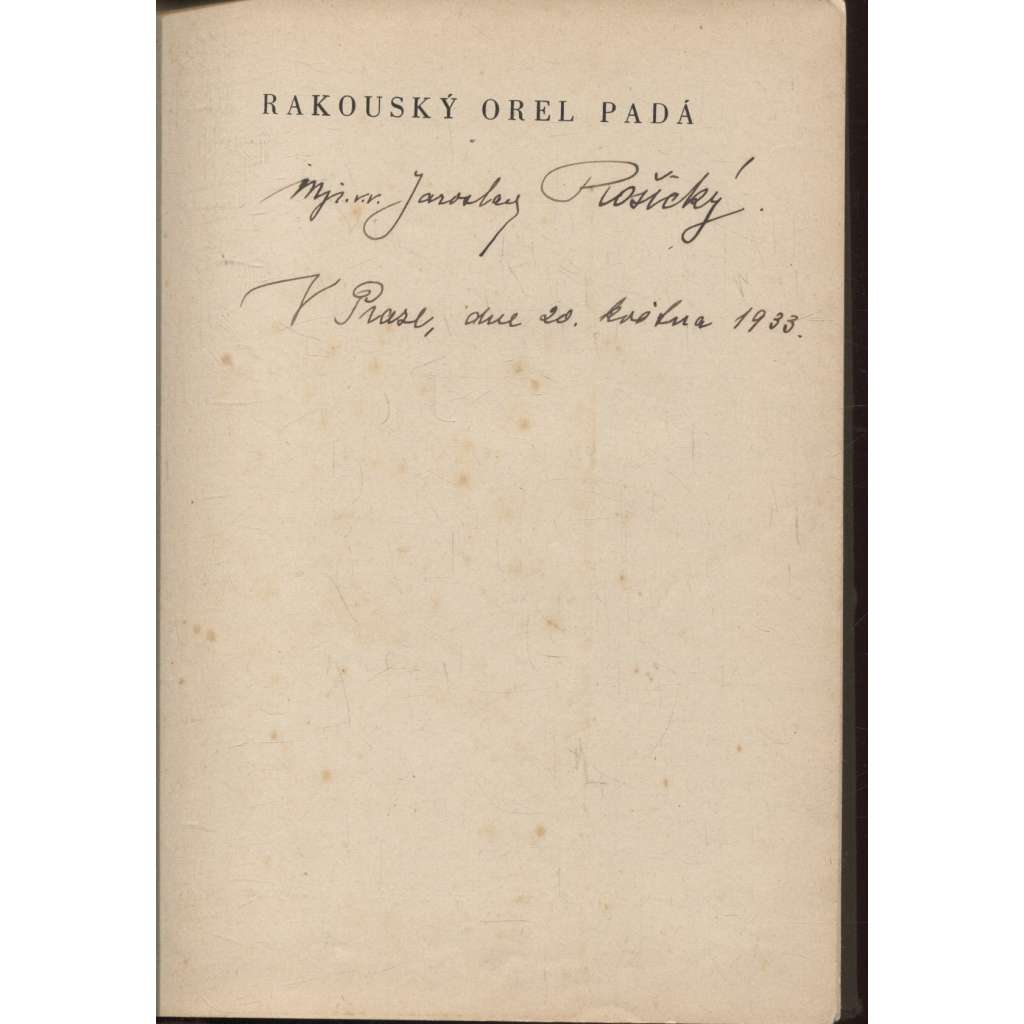 RAKOUSKÝ OREL PADÁ
Mjr. v.v. Jaroslav Rošický.
V Praze, dne 20. května 1933.